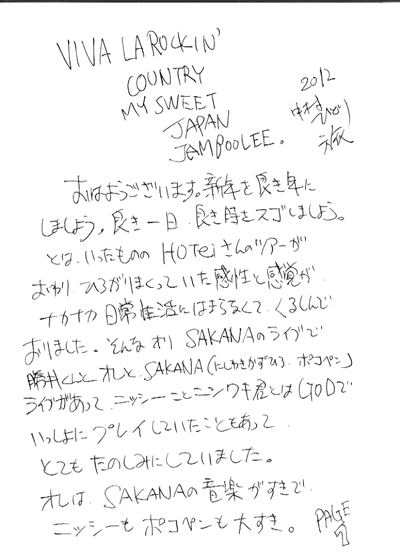 VIVA LA ROCKIN'
COUNTRY
MY SWEET
JAPAN
JAMBOOLEE.
2012
中村ひどり
おはようございます。新年を良き年に
しましよう,良き一日.良き時をスゴしましよう。
とは.いったものの HOTeiさんのツアーが
おわり.ひろがりまくっていた感性と感覚が.
ナカナカ日常生活にはまらなくて.くるしんで
おりました。そんなオリ SAKANAのライブで
勝井くんと.オレと.SAKANA(にしわきかずひろ.ポコペン)
ライブがあって.ニッシーことニシワキ君とはGODで
いっしよにプレイしていたこともあって.
とてもたのしみにしていました。
オレは.SAKANAの音楽がすきで.
ニッシーもポコペンも大すき。
PAGE
1